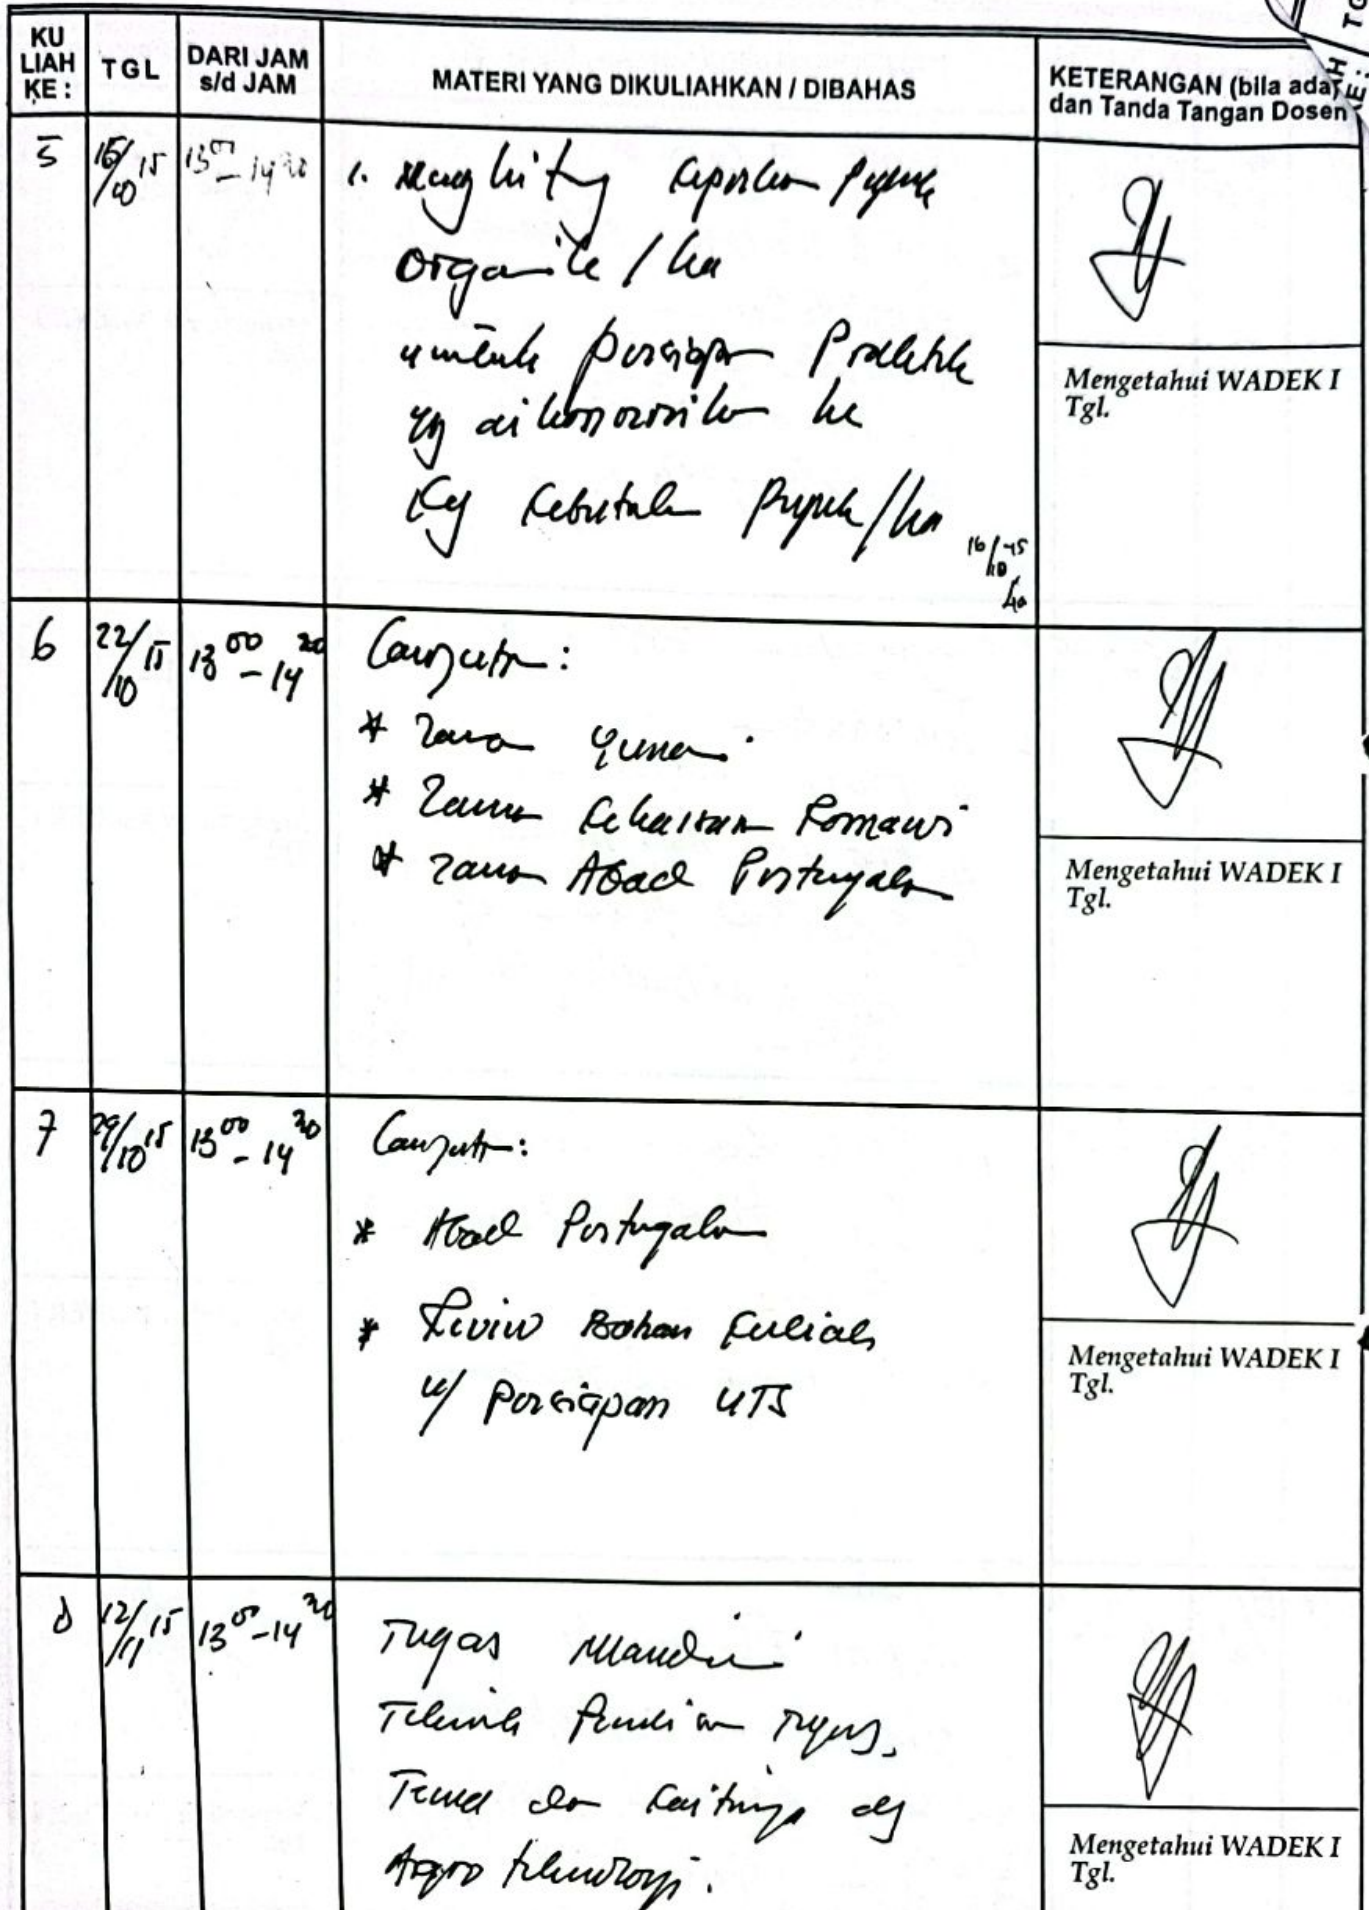 KU LIAH KE :
TGL
DARI JAM s/d JAM
MATERI YANG DIKULIAHKAN / DIBAHAS
KETERANGAN (bila ada) dan Tanda Tangan Dosen
5
15/10 15
13 00 - 14 20
1. Menghitung Keperluan Pupuk
Organik / ha
untuk persiapan Praktek
yg dikonversikan ke
Kg Kebutuhan Pupuk/ha
16/10-15
Mengetahui WADEK I
Tgl.
6
22/10 15
13 00 - 14 20
Lanjutan :
* Zaman Yunani
* Zaman Kekaisaran Romawi
* Zaman Abad Pertengahan
Mengetahui WADEK I
Tgl.
7
29/10 15
13 00 - 14 20
Lanjutan :
* Abad Pertengahan
* Reviw Bahan Kuliah
u/ persiapan UTS
Mengetahui WADEK I
Tgl.
8
12/11 15
13 00 - 14 20
Tugas Mandiri
Teknik Tugas,
Tema dan Kaitannya dg
Agroteknologi.
Mengetahui WADEK I
Tgl.